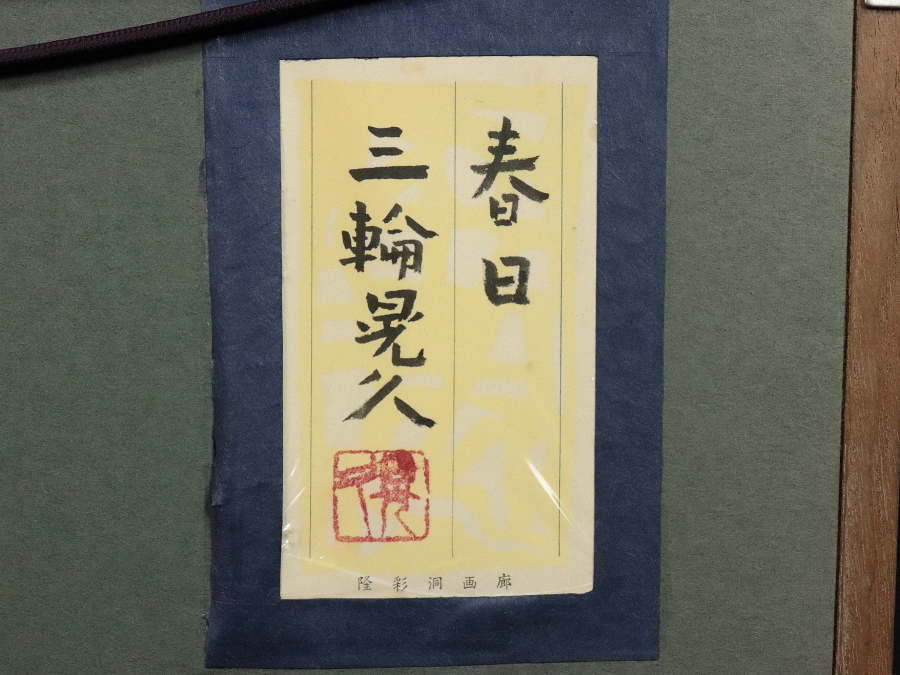 春日
三輪晃久
隆彩洞画廊